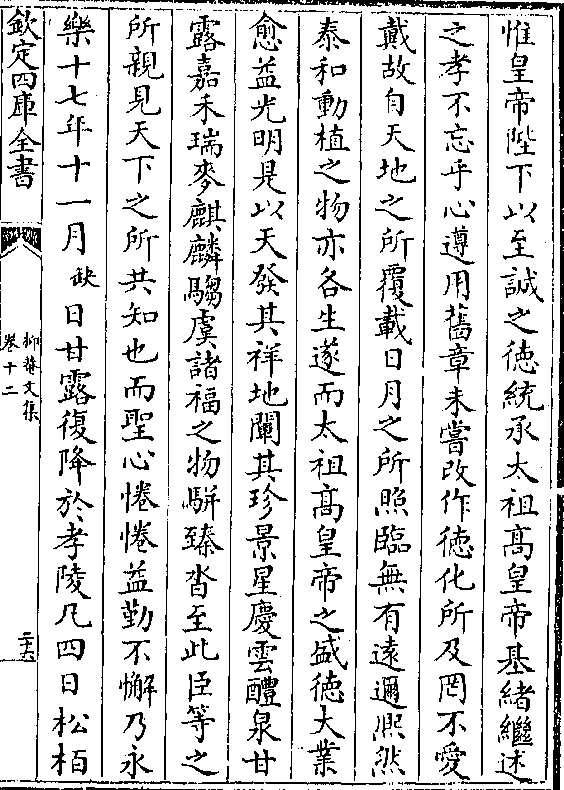 惟皇帝陛下以至誠之徳統承太祖髙皇帝基緒繼述
之孝不忘乎心遵用舊章未嘗改作徳化所及罔不愛
戴故自天地之所覆載日月之所照臨無有逺邇熈然
泰和動植之物亦各生遂而太祖髙皇帝之盛徳大業
愈益光明是以天發其祥地闡其珍景星慶雲醴泉甘
露嘉禾瑞麥麒麟騶虞諸福之物駢臻沓至此臣等之
所親見天下之所共知也而聖心惓惓益勤不懈乃永
樂十七年十一月缺日甘露復降於孝陵凡四日松栢
欽定四庫全書
抑菴文集
卷十二
二十六